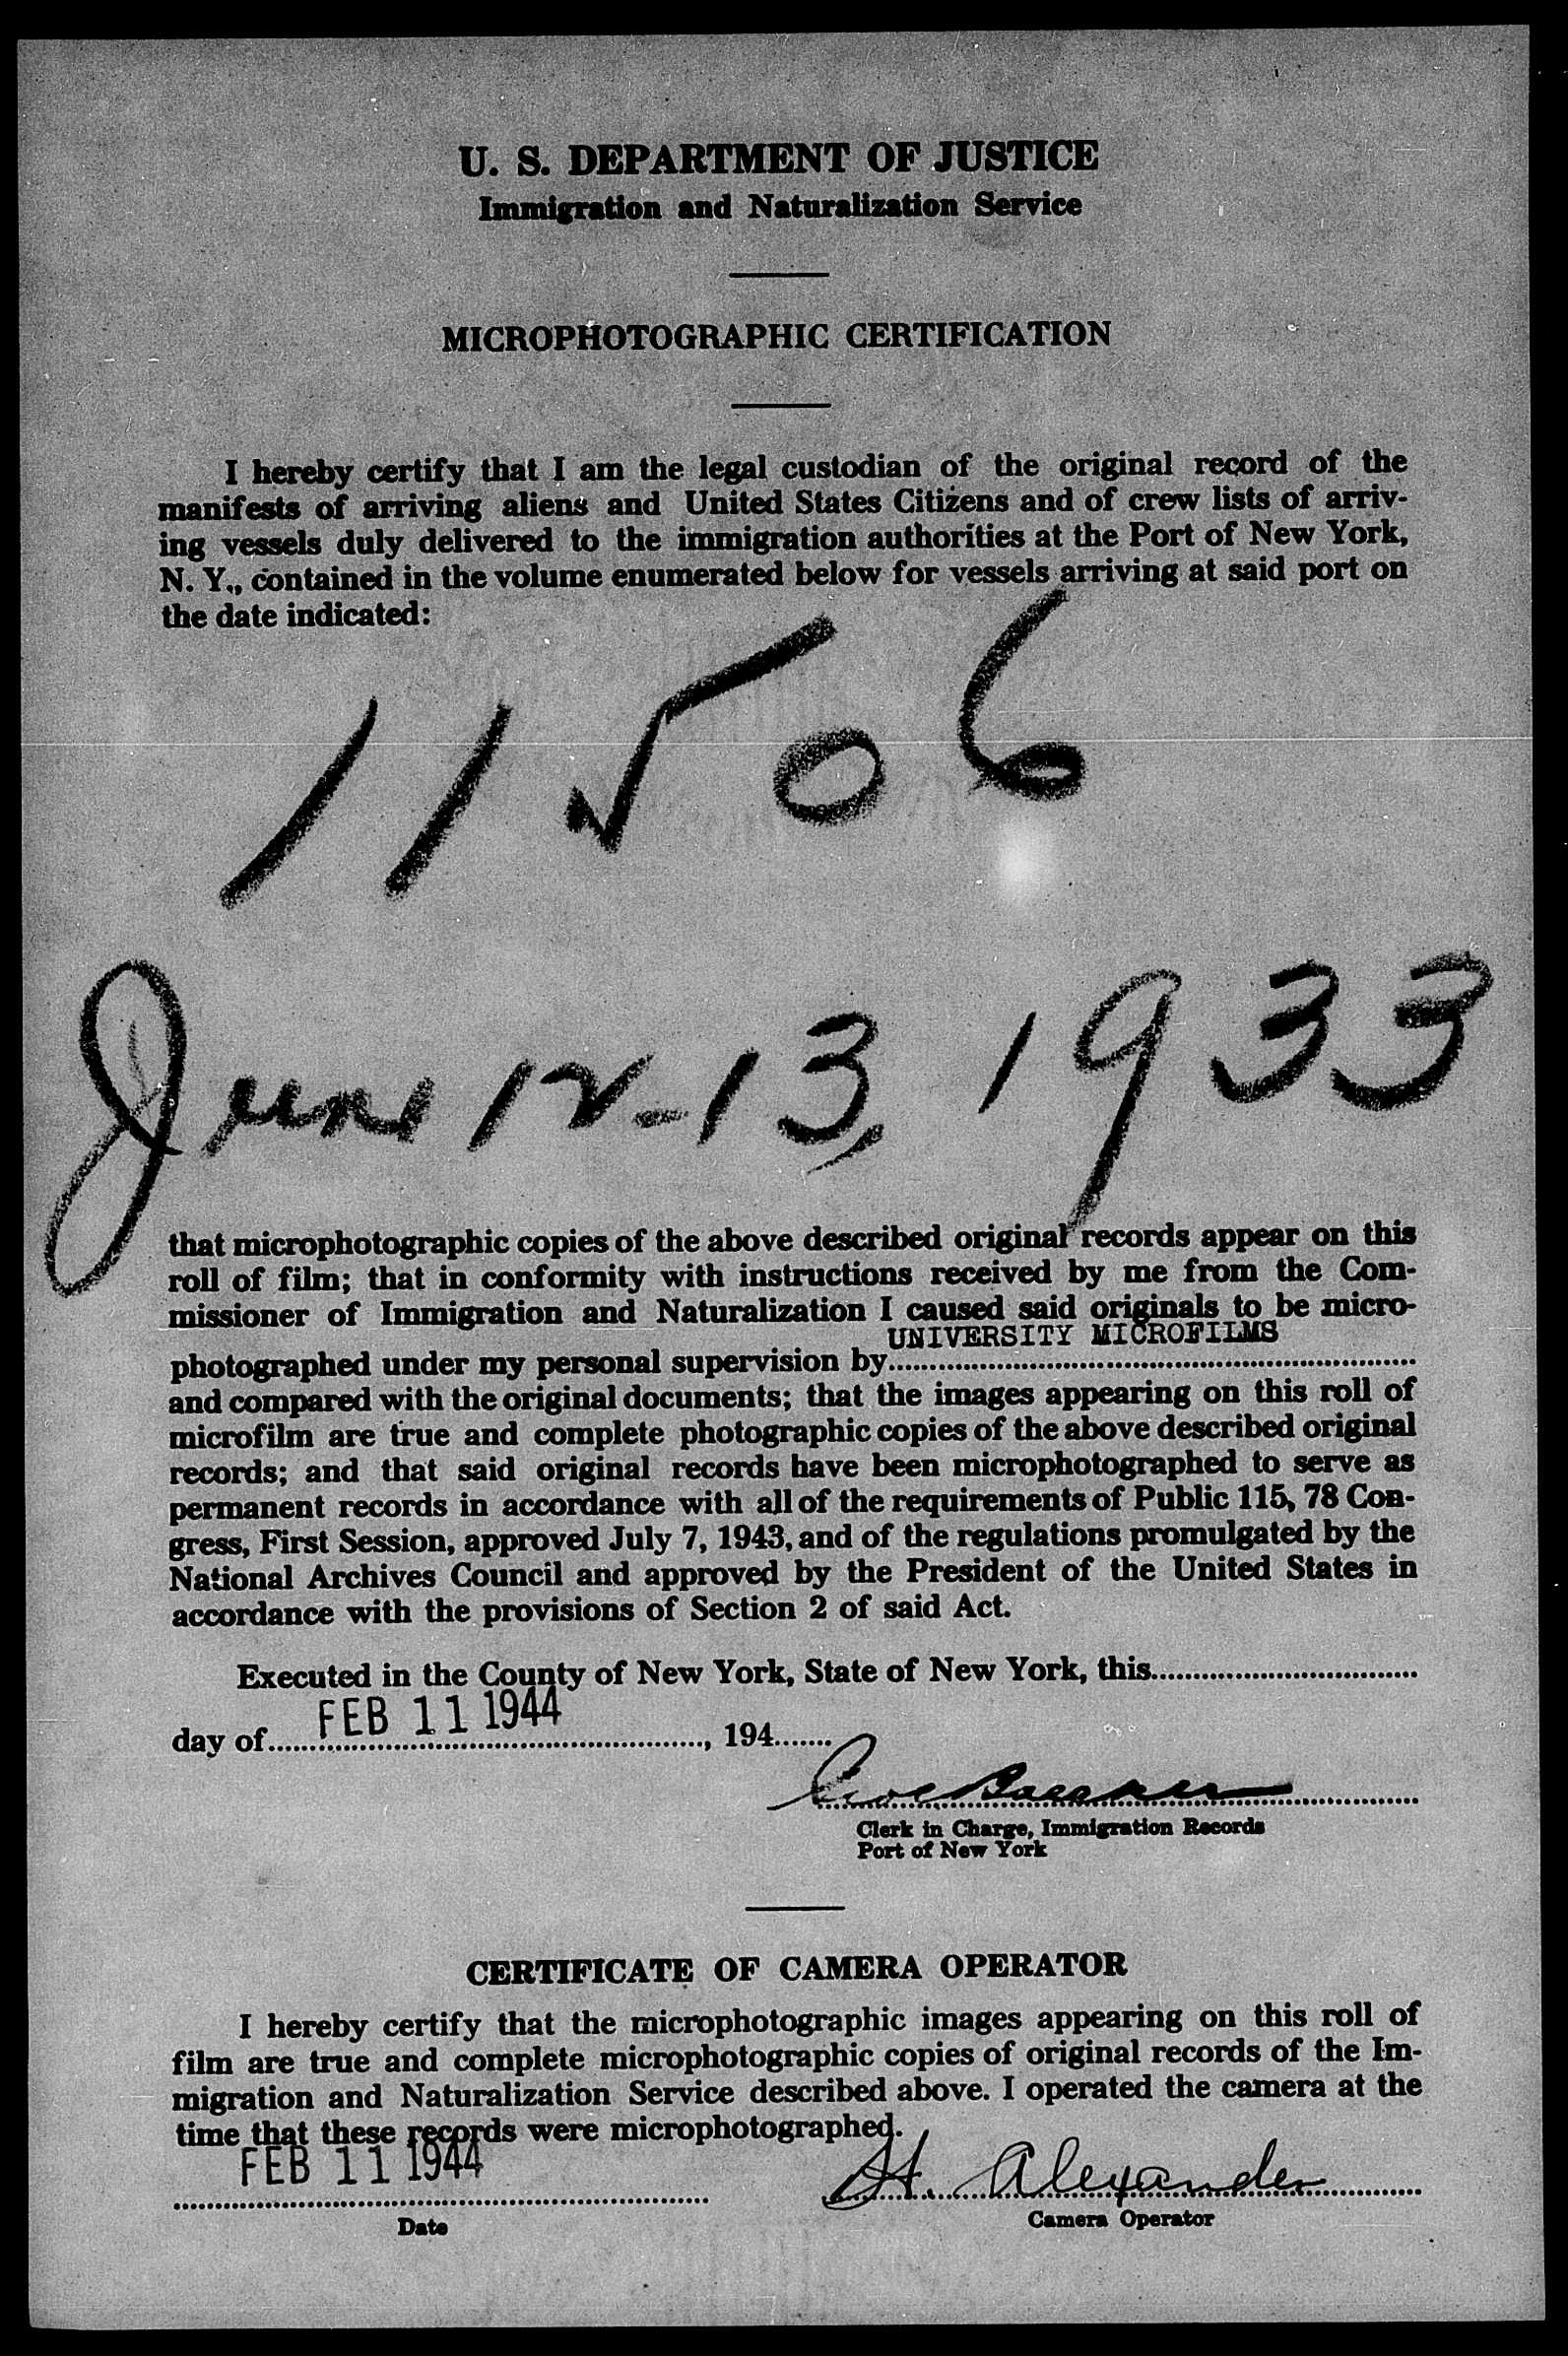 U. S. DEPARTMENT OF JUSTICE
Immigration and Naturalization Service
MICROPHOTOGRAPHIC CERTIFICATION
I hereby certify that I am the legal custodian of the original record of the
manifests of arriving aliens and United States Citizens and of crew lists of arriv-
ing vessels duly delivered to the immigration authorities at the Port of New York,
N. Y., contained in the volume enumerated below for vessels arriving at said port on
the date indicated:
11506
June 12-13, 1933
that microphotographic copies of the above described original records appear on this
roll of film; that in conformity with instructions received by me from the Com-
missioner of Immigration and Naturalization I caused said originals to be micro-
UNIVERSITY MICROFILMS
photographed under my personal supervision by
and compared with the original documents; that the images appearing on this roll of
microfilm are true and complete photographic copies of the above described original
records; and that said original records have been microphotographed to serve as
permanent records in accordance with all of the requirements of Public 115, 78 Con-
gress, First Session, approved July 7, 1943, and of the regulations promulgated by the
National Archives Council and approved by the President of the United States in
accordance with the provisions of Section 2 of said Act.
Executed in the County of New York, State of New York, this
FEB 11 1944
day of , 194
Clerk in Charge, Immigration Records
Port of New York
CERTIFICATE OF CAMERA OPERATOR
I hereby certify that the microphotographic images appearing on this roll of
film are true and complete microphotographic copies of original records of the Im-
migration and Naturalization Service described above. I operated the camera at the
time that these records were microphotographed.
FEB 11 1944
H. Alexander
Date
Camera Operator